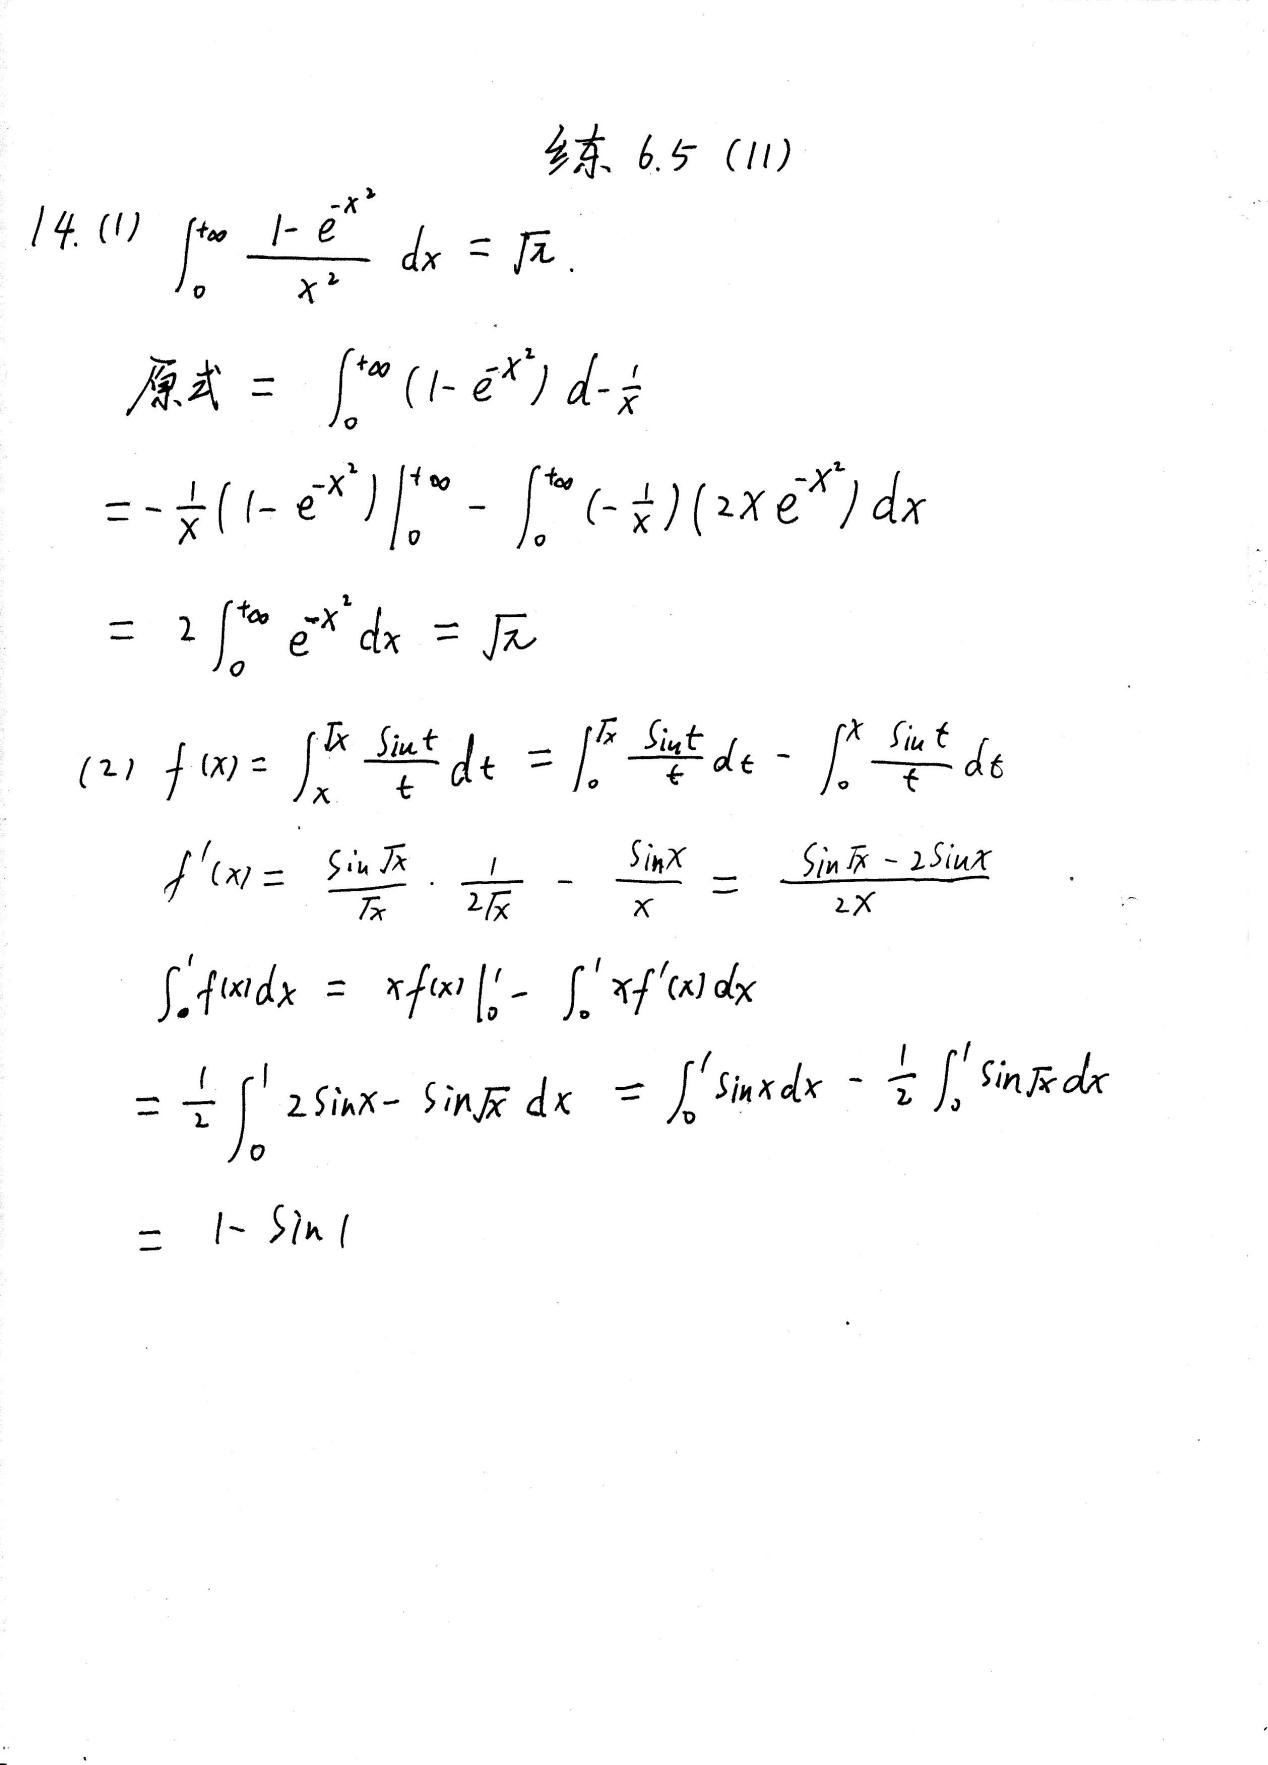 练 6.5 (11)
14. (1) ∫₀^{+∞} (1-e^{-x²})/x² dx = √π.
原式 = ∫₀^{+∞} (1-e^{-x²}) d-1/x
= -1/x (1-e^{-x²})|₀^{+∞} - ∫₀^{+∞} (-1/x)(2xe^{-x²})dx
= 2∫₀^{+∞} e^{-x²}dx = √π
(2) f(x) = ∫ₓ^{√x} sint/t dt = ∫₀^{√x} sint/t dt - ∫₀^{x} sint/t dt
f'(x) = sin√x/√x · 1/(2√x) - sinx/x = (sin√x - 2sinx)/2x
∫₀¹f(x)dx = xf(x)|₀¹ - ∫₀¹ xf'(x)dx
= 1/2 ∫₀¹ 2sinx - sin√x dx = ∫₀¹ sinxdx - 1/2 ∫₀¹ sin√xdx
= 1-sin1